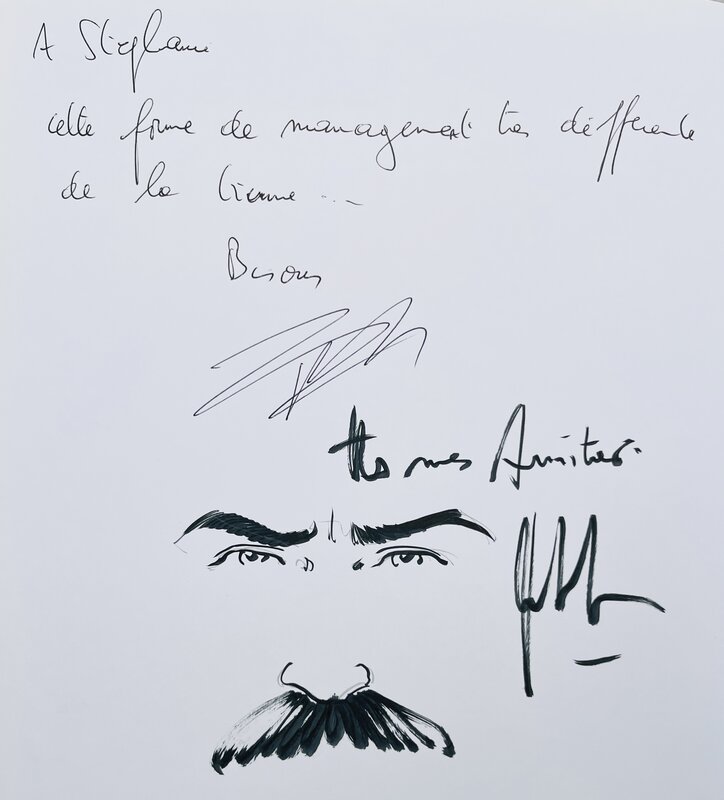 A Stéphane
cette forme de management très différente
de la tienne ...
Bisous
Amitiés.